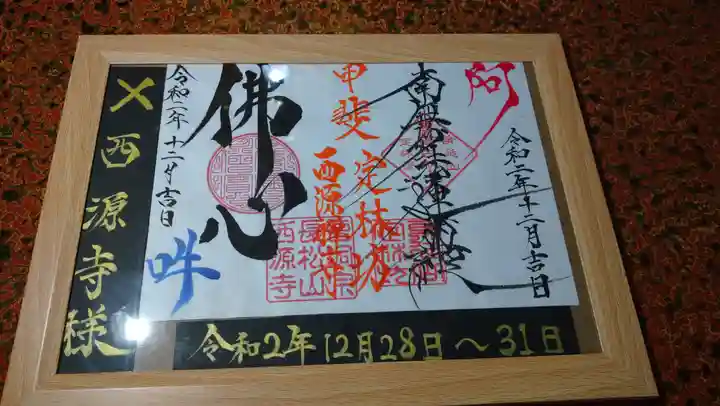 阿
令和二年十二月吉日
甲斐定林坊
西源禅寺
佛心
令和二年十二月吉日
吽
曹洞宗
長松山
西源寺
西源寺様
令和2年12月28日～31日